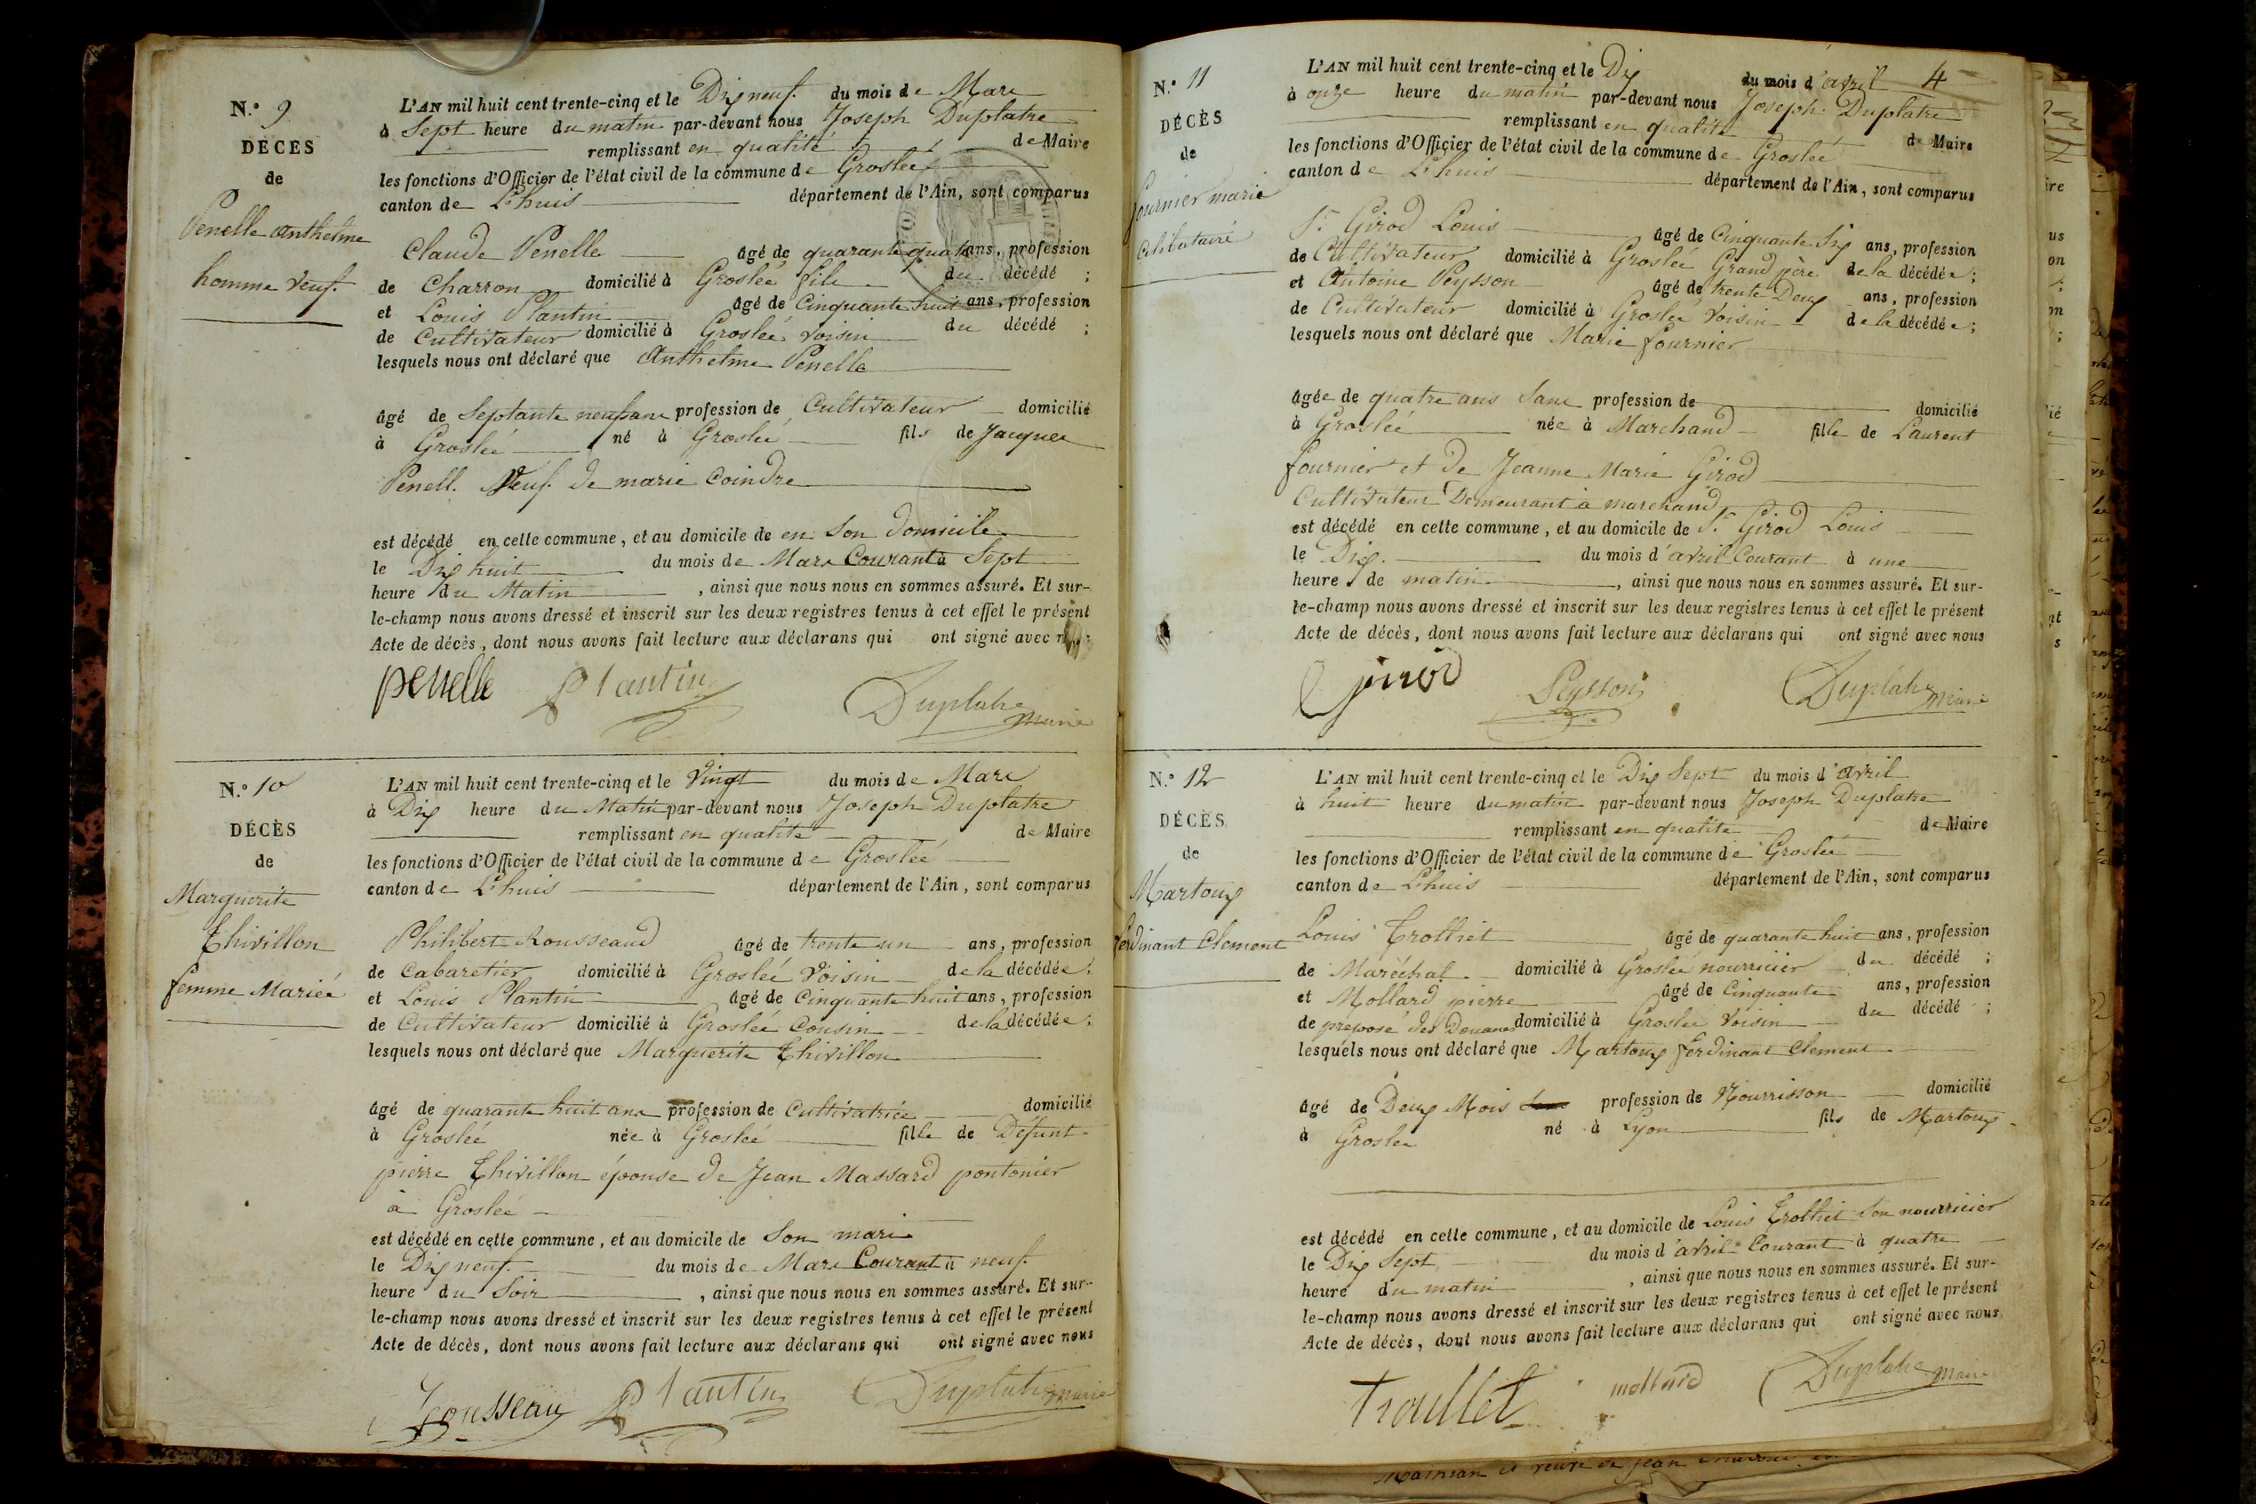 N.º 9
DÉCÈS
de
Penelle anthelme
homme veuf.
L'AN mil huit cent trente-cinq et le Dix neuf. du mois de Mars
à Sept heure du matin par-devant nous Joseph Duplatre
remplissant en qualité de Maire
les fonctions d'Officier de l'état civil de la commune de Groslée
canton de L'huis département de l'Ain, sont comparus
Claude Penelle âgé de quarante quatre ans, profession
de Charron domicilié à Groslée fils du décédé ;
et Louis Plantin âgé de Cinquante huit ans, profession
de Cultivateur domicilié à Groslée voisin du décédé ;
lesquels nous ont déclaré que Anthelme Penelle
âgé de Septante neuf ans profession de Cultivateur domicilié
à Groslée né à Groslée fils de Jacques
Penell. Veuf. de marie Coindre
est décédé en cette commune, et au domicile de en Son Domicile
le Dix huit du mois de Mars Courant à Sept
heure du Matin , ainsi que nous nous en sommes assuré. Et sur-
le-champ nous avons dressé et inscrit sur les deux registres tenus à cet effet le présent
Acte de décès, dont nous avons fait lecture aux déclarans qui ont signé avec nous
penelle Plantin Duplatre maire
N.º 10
DÉCÈS
de
Marguerite
Thivillon
femme Mariée
L'AN mil huit cent trente-cinq et le Vingt du mois de Mars
à Dix heure du Matin par-devant nous Joseph Duplatre
remplissant en qualité de Maire
les fonctions d'Officier de l'état civil de la commune de Groslée
canton de L'huis département de l'Ain, sont comparus
Philibert Rousseaud âgé de trente un ans, profession
de Cabaretier domicilié à Groslée Voisin de la décédée ;
et Louis Plantin âgé de Cinquante huit ans, profession
de Cultivateur domicilié à Groslée Cousin de la décédée ;
lesquels nous ont déclaré que Marguerite Thivillon
âgé de quarante huit ans profession de Cultivatrice domicilié
à Groslée née à Groslée fille de Défunt
pierre Thivillon épouse de Jean Massard pontonier
à Groslée
est décédé en cette commune, et au domicile de Son mari
le Dix neuf. du mois de Mars Courant à neuf.
heure du Soir , ainsi que nous nous en sommes assuré. Et sur-
le-champ nous avons dressé et inscrit sur les deux registres tenus à cet effet le présent
Acte de décès, dont nous avons fait lecture aux déclarans qui ont signé avec nous
Rousseau Plantin Duplatre maire
4
N.º 11
DÉCÈS
de
fournier marie
célibataire
L'AN mil huit cent trente-cinq et le Dix du mois d'avril
à onze heure du matin par-devant nous Joseph Duplatre
remplissant en qualité de Maire
les fonctions d'Officier de l'état civil de la commune de Groslée
canton de L'huis département de l'Ain, sont comparus
Sr. Girod Louis âgé de Cinquante Six ans, profession
de Cultivateur domicilié à Groslée Grand père de la décédée ;
et Antoine Peysson âgé de trente Deux ans, profession
de Cultivateur domicilié à Groslée Voisin de la décédée ;
lesquels nous ont déclaré que Marie fournier
âgée de quatre ans Sans profession de domicilié
à Groslée née à Marchand fille de Laurent
fournier et de Jeanne Marie Girod
Cultivateur Demeurant à marchand
est décédé en cette commune, et au domicile de Sr. Girod Louis
le Dix. du mois d'avril Courant à une
heure de matin , ainsi que nous nous en sommes assuré. Et sur-
le-champ nous avons dressé et inscrit sur les deux registres tenus à cet effet le présent
Acte de décès, dont nous avons fait lecture aux déclarans qui ont signé avec nous
girod Peysson Duplatre maire
N.º 12
DÉCÈS
de
Martoux
ferdinant Clement
L'AN mil huit cent trente-cinq et le Dix Sept du mois d'avril
à huit heure du matin par-devant nous Joseph Duplatre
remplissant en qualité de Maire
les fonctions d'Officier de l'état civil de la commune de Groslée
canton de L'huis département de l'Ain, sont comparus
Louis Trolliet âgé de quarante huit ans, profession
de Maréchal domicilié à Groslée nourricier du décédé ;
et Mollard pierre âgé de Cinquante ans, profession
de préposé des Douanes domicilié à Groslée Voisin du décédé ;
lesquels nous ont déclaré que Martoux ferdinant Clement
âgé de Deux Mois profession de Nourrisson domicilié
à Groslee né à Lyon fils de Martoux
est décédé en cette commune, et au domicile de Louis Trolliet Son nourricier
le Dix Sept du mois d'avril Courant à quatre
heure du matin , ainsi que nous nous en sommes assuré. Et sur-
le-champ nous avons dressé et inscrit sur les deux registres tenus à cet effet le présent
Acte de décès, dont nous avons fait lecture aux déclarans qui ont signé avec nous
Troulliet mollard Duplatre maire